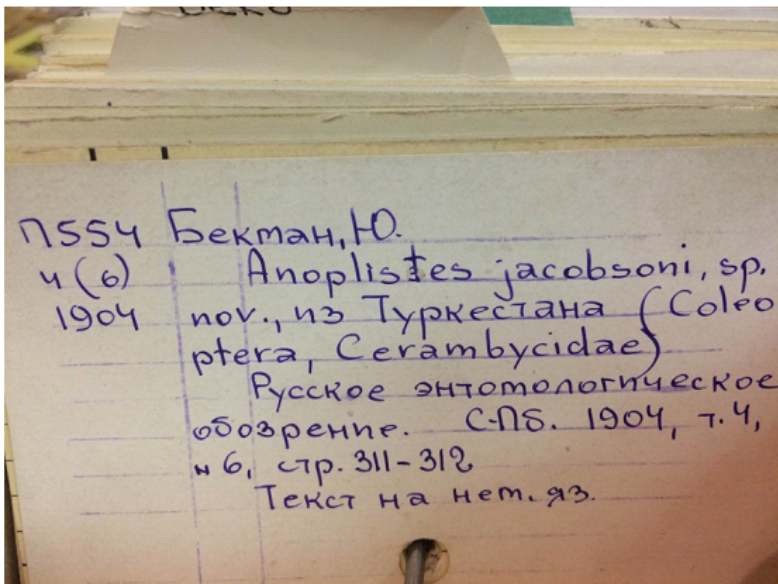 П554 Бекман, Ю.
4(6) Anoplistes jacobsoni, sp.
1904 nov., из Туркестана (Coleo
ptera, Cerambycidae)
Русское энтомологическое
обозрение. С-Пб. 1904, т.4,
н 6, стр. 311-312
Текст на нем. яз.